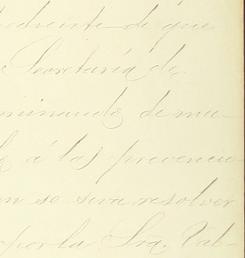 de que
Secretaría de
minando de ma-
á las prevencio
n se sirva resolver
por la Sra. Val-